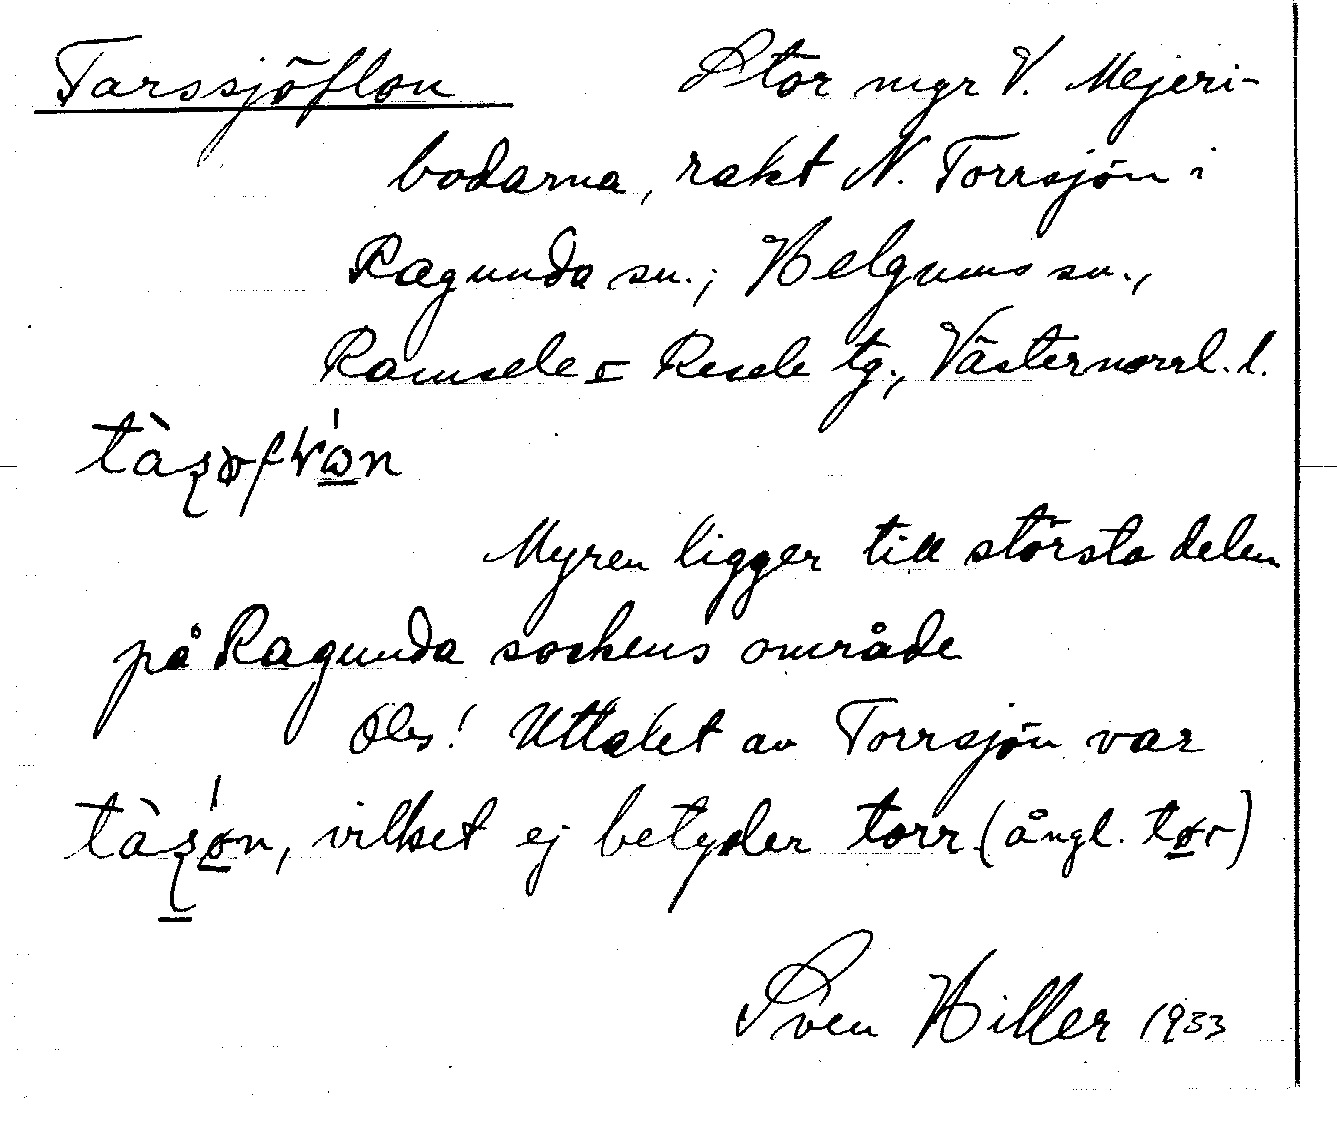 Tarssjöflon Stor myr V. Mejeri-
bodarna, rakt N. Torrsjön i
Ragunda sn.; Helgums sn.,
Ramsele o Resele tg., Västernorrl. l.
Myren ligger till största delen
på Ragunda sockens område
Obs! Uttalet av Torrsjön var
vilket ej betyder torr (ångl. tør)
Sven Hiller 1933